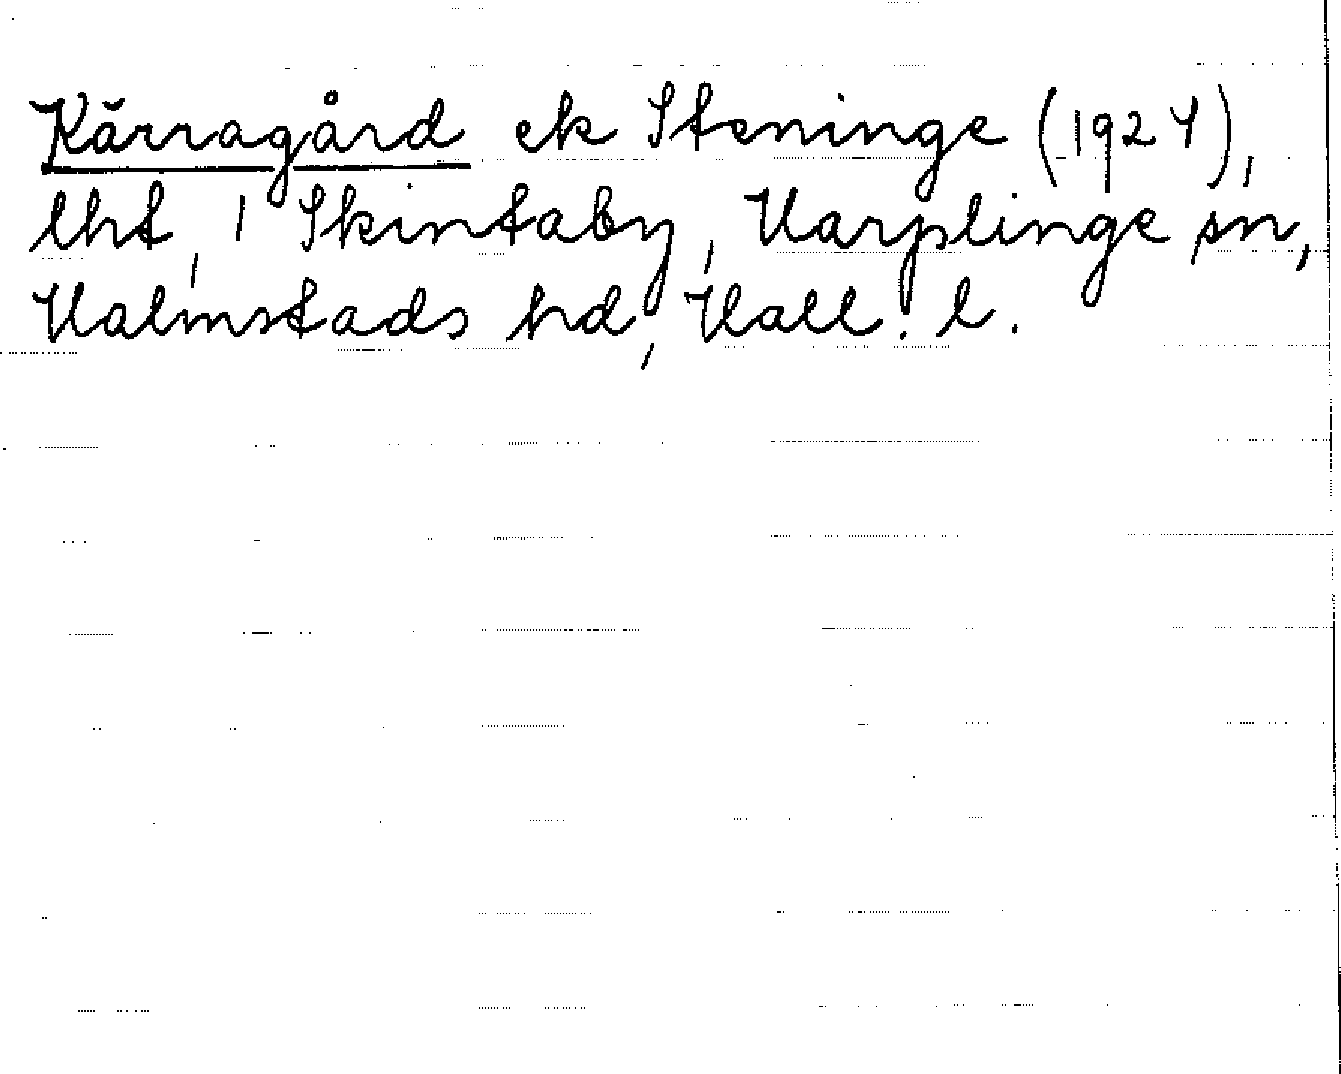 Kärragård ek Steninge (1927),
lht, 1 Skintaby, Harplinge sn,
Halmstads hd, Hall. l.